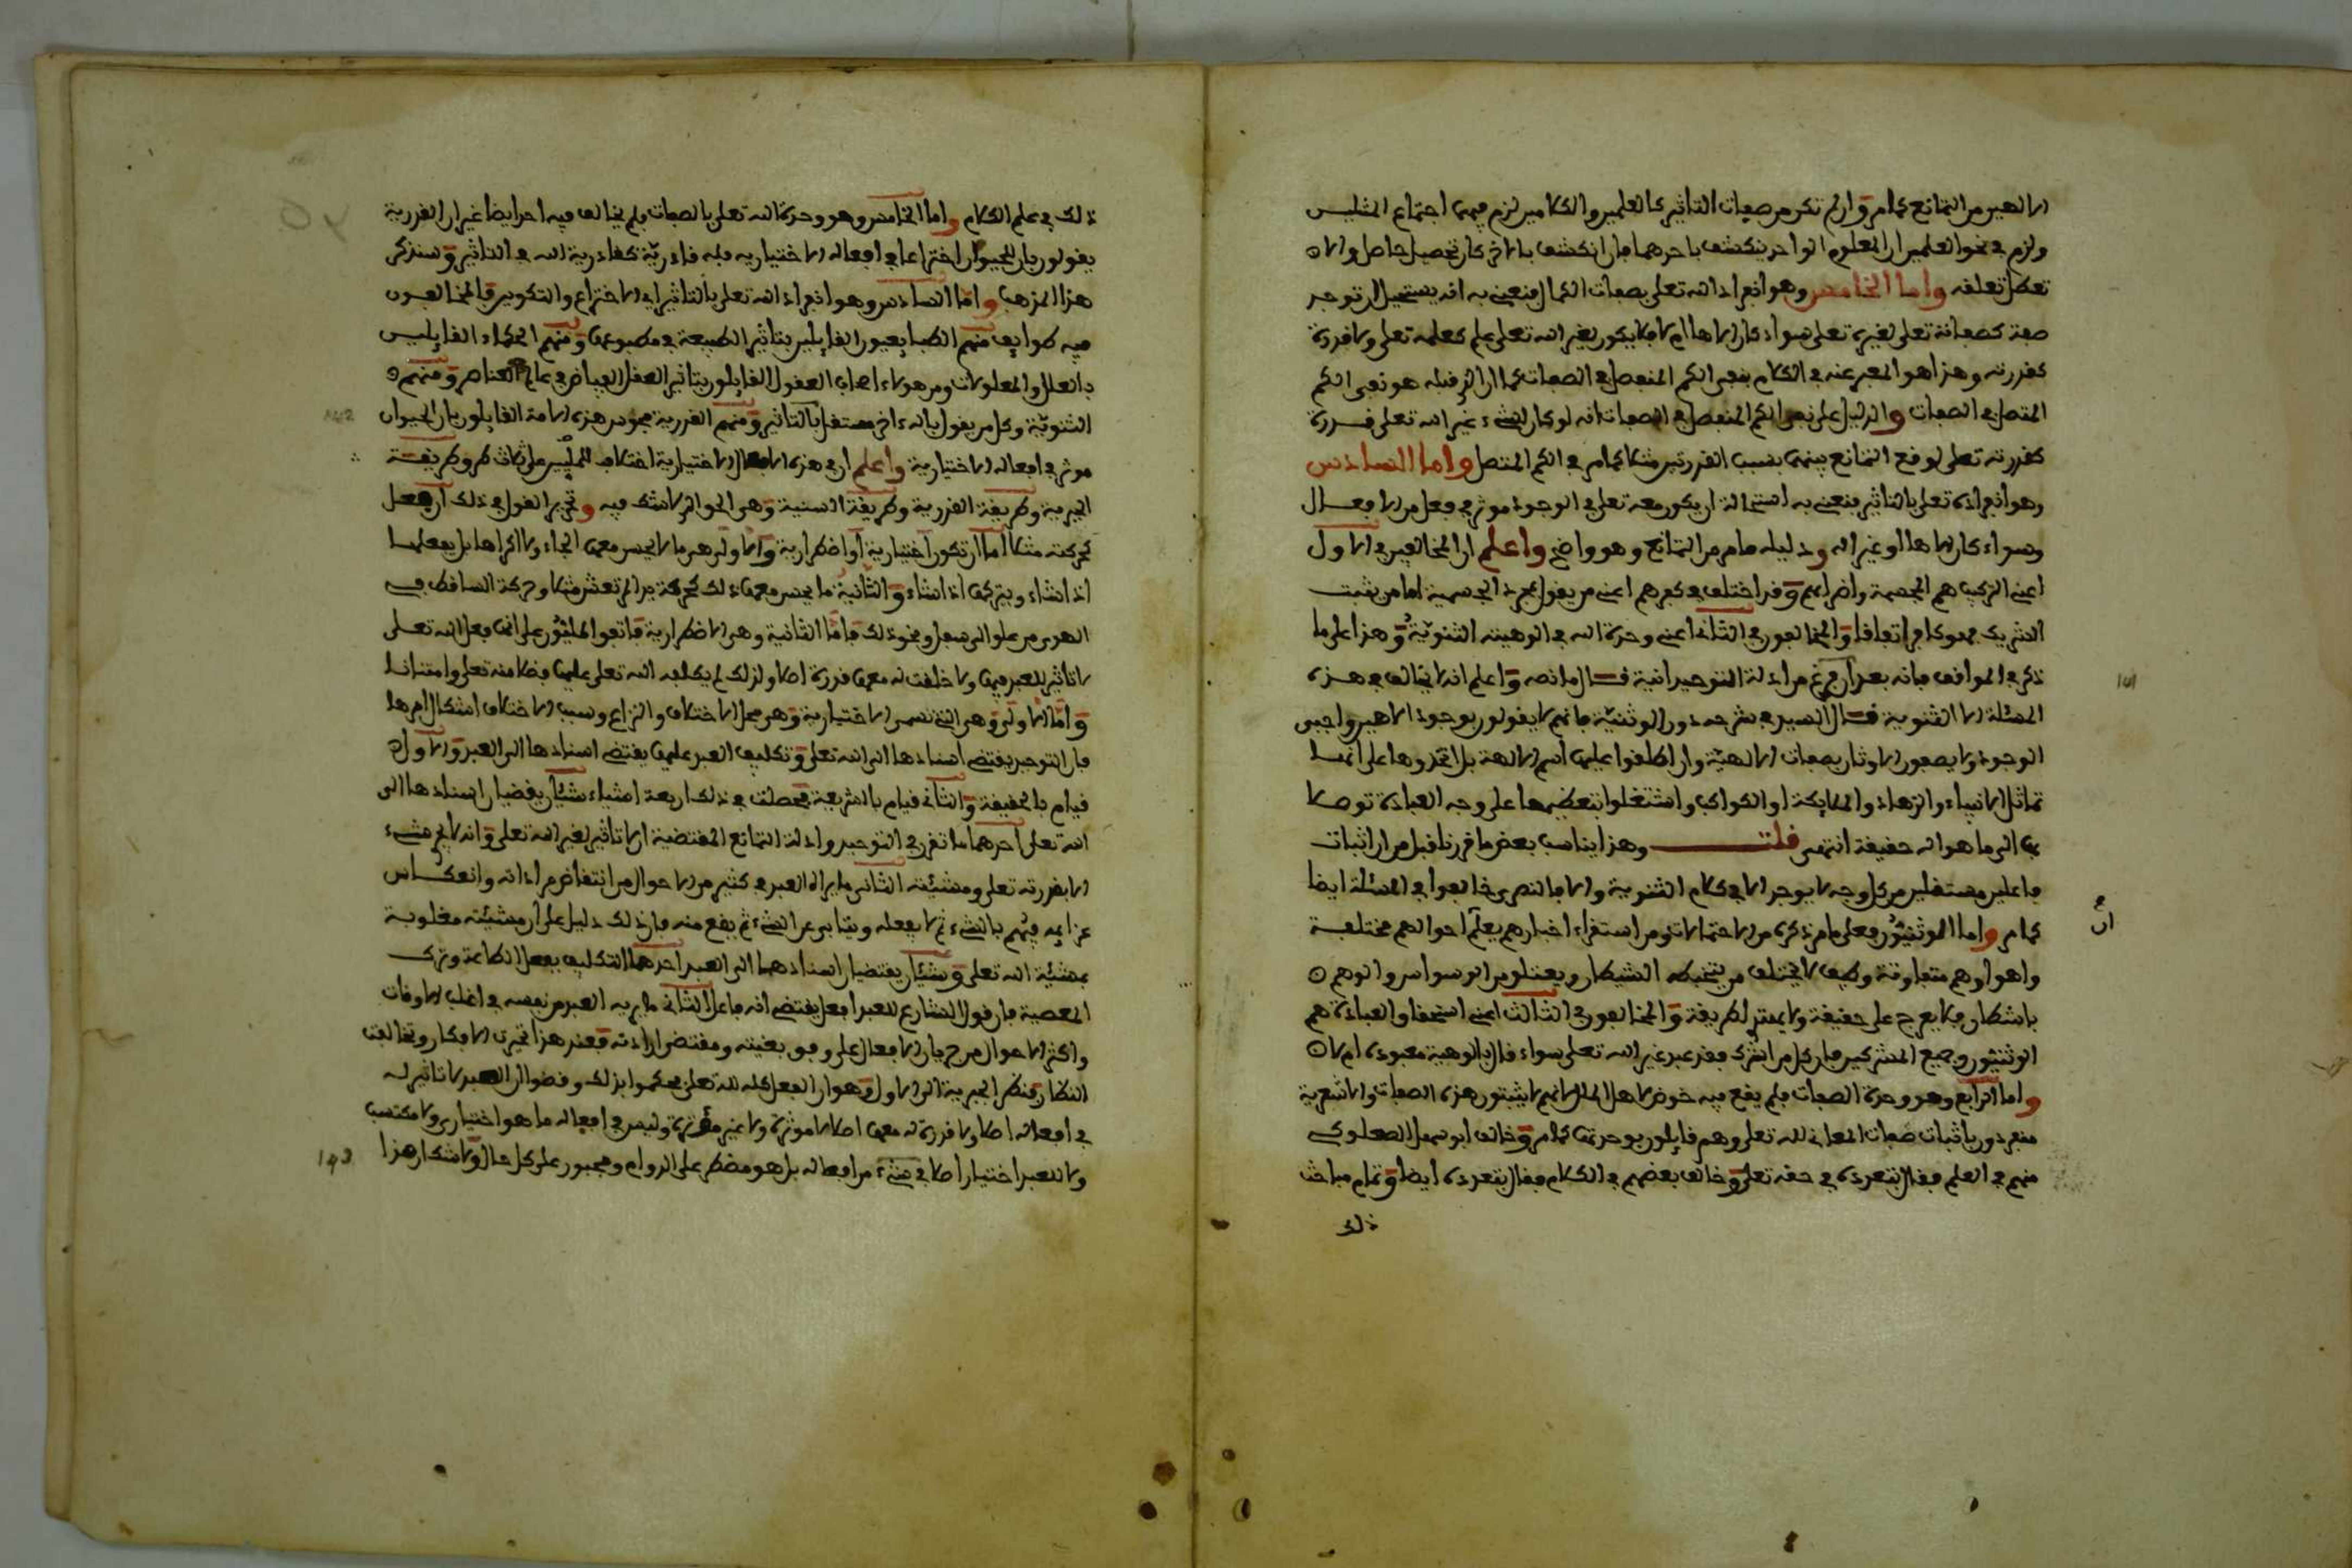 الالهين من التمانع كما مر وان لم تكن من صفات التاثير كالعلمين والكلامين لزم فيهما اجتماع المثلين
ولزم في نحو العلمين ان المعلوم الواحد ينكشف باحدهما فان انكشف بالاخر كان تحصيل حاصل والا
تعطل تعلقه واما الخامس وهو انفراد الله تعلى بصفات الكمال فنعني به انه يستحيل ان توجد
صفة كصفاته تعلى لغيره تعلى سواء كان الاها ام لا فلا يكون لغير الله تعلى علم كعلمه تعلى ولا قدرة
كقدرته وهذا هو المعبر عنه في الكلام بنفي الكم المنفصل في الصفات كما ان الذي قبله هو نفي الكم
المتصل في الصفات والدليل على نفي الكم المنفصل في الصفات انه لو كان لشيء غير الله تعلى قدرة
كقدرته تعلى لوقع التمانع بينهما بسبب القدرتين مثلا كما مر في الكم المتصل واما السادس
وهو انفراده تعلى بالتاثير فنعني به استحالة ان يكون معه تعلى في الوجود موثر في فعل من الافعال
وسواء كان الاها او غير اله ودليله ما مر من التمانع وهو واضح واعلم ان المخالفين في الاول
اعني التركيب هم المجسمة واضرابهم وقد اختلف في كفرهم اعني من يقول بمجرد الجسمية اما من يثبت
الشريك فهو كافر اتفاقا والمخالفون في الثاني اعني وحدة الله في الوهيته الثنوية وهذا على ما
ذكر في المواقف فانه بعد ان فرغ من ادلة التوحيد اتية قال ما نصه واعلم انه لا يخالف في هذه
المسئلة الا الثنوية قال السيد في شرحه دون الوثنية فانهم لا يقولون بوجود الاهين واجبي
الوجود ولا يصفون الاوثان بصفات الالهية وان اطلقوا عليها اسم الالهة بل اتخذوها على انها
تماثل الانبياء والزهاد والملايكة او الكواكب واشتغلوا بتعظيمها على وجه العبادة توصلا
بها الى ما هو اله حقيقة انتهى قلت وهذا يناسب بعض ما قررنا قبل من ان اثبات
فاعلين مستقلين من كل وجه لا يوجد الا في كلام الثنوية والا فالنصرى خالفوا في المسئلة ايضا
كما مر واما الوثنيون فعلى ما مر ذكره من الاحتمالات ومن استقراء اخبارهم يعلم ان احوالهم مختلفة
واهواوهم متفاوتة وكيف لا يختلف من يتخبطه الشيطان ويعتلو من الوسواس والوهم
باشطان فلا يعرج على حقيقة ولا يهتدي لطريقة والمخالفون في الثالث اعني استحقاق العبادة هم
الوثنيون وجميع المشركين فان كل من اشرك فقد عبد غير الله تعلى سواء قال بالوهية معبوده ام لا
واما الرابع وهو وحدة الصفات فلم يقع فيه خوض لاهل الملل لانهم لا يثبتون هذه الصفات والاشعرية
منفردون باثبات صفات المعاني لله تعلى وهم قايلون بوحدتها كما مر وخالف ابو سهل الصعلوكي
منهم في العلم فقال بتعدده في حقه تعلى وخالف بعضهم في الكلام فقال بتعدده ايضا وتمام مباحث
ذلك
ذلك في علم الكلام واما الخامس وهو وحدة الله تعلى بالصفات فلم يخالف فيه احد ايضا غير ان القدرية
يقولون بان للحيوان اختراعا في افعاله الاختيارية فله قادرية كقادرية الله في التاثير وسنذكر
هذا المذهب واما السادس وهو انفراد الله تعلى بالتاثير اي الاختراع والتكوين فالمخالفون
فيه طوايف منهم الطبايعيون القايلين بتاثير الطبيعة في مطبوعها ومنهم الحكماء القايلين
بالعلل والمعلولات ومن هولاء اصحاب العقول القايلون بتاثير العقل الفياض في عالم العناصر ومنهم
الثنوية وكل من يقول باله ءاخر مستقل بالتاثير ومنهم القدرية مجوس هذه الامة القايلون بان الحيوان
موثر في افعاله الاختيارية واعلم ان في هذه الافعال الاختيارية اختلاف المليين على ثلاث طرق طريقة
الجبرية وطريقة القدرية وطريقة السنية وهي الحق الذي لا شك فيه وتحرير القول في ذلك ان فعل
كحركته مثلا اما ان تكون اختيارية او اضطرارية والاولى هي ما لا يحس معها الجاء ولا اكراها بل يفعلها
اذا شاء ويتركها اذا شاء والثانية ما يحس معها ذلك كحركة يد المرتعش مثلا وحركة الساقط في
الهوى من علو الى سفل ونحو ذلك فاما الثانية وهي الاضطرارية فاتفق المليون على انها فعل الله تعلى
لا تاثير للعبد فيها ولا خلقت له معها قدرة اصلا ولذلك لم يكلف الله تعلى عليها فضلا منه تعلى وامتنانا
واما الاولى وهي التي تسمى الاختيارية وهي محل الاختلاف والنزاع وسبب الاختلاف اشكال امرها
فان التوحيد يقتضي اسنادها الى الله تعلى وتكليف العبد عليها يقتضي اسنادها الى العبد والاول
قيام بالحقيقة والثاني قيام بالشريعة فحصلت في ذلك اربعة اشياء شيئان يقضيان اسنادها الى
الله تعلى احدهما ما تقرر في التوحيد وادلة التمانع المقتضية ان لا تاثير لغير الله تعلى وانه لا يخرج شيء
الا بقدرته تعلى ومشيئته الثاني ما يراه العبد في كثير من الاحوال من انتقاض مراداته وانعكاس
عزايمه فيهم بالشيء ثم لا يفعله ويتابى عن الشيء ثم يقع منه فان ذلك دليل على ان مشيئته مغلوبة
بمشيئة الله تعلى وشيئان يقتضيان اسنادهما الى العبد احدهما التكليف بفعل الطاعة وترك
المعصية فان قول الشارع للعبد افعل يقتضي انه فاعل الثاني ما يريه العبد من نفسه في اغلب الاوقات
واكثر الاحوال من جريان الافعال على وفق بغيته ومقتضى ارادته فعند هذا تحيرت الافكار وتخالفت
النظار فنظر الجبرية الى الاول وهو ان الفعل كله لله تعلى فحكموا بذلك وقضوا ان العبد لا تاثير له
في افعاله اصلا ولا قدرة له معها اصلا لا موثرة ولا غير موثرة وليس في افعاله ما هو اختياري ولا مكتسب
ولا للعبد اختيار اصلا في شيء من افعاله بل هو مضطر على الدوام ومجبور على كل حال ولا شك ان هذا